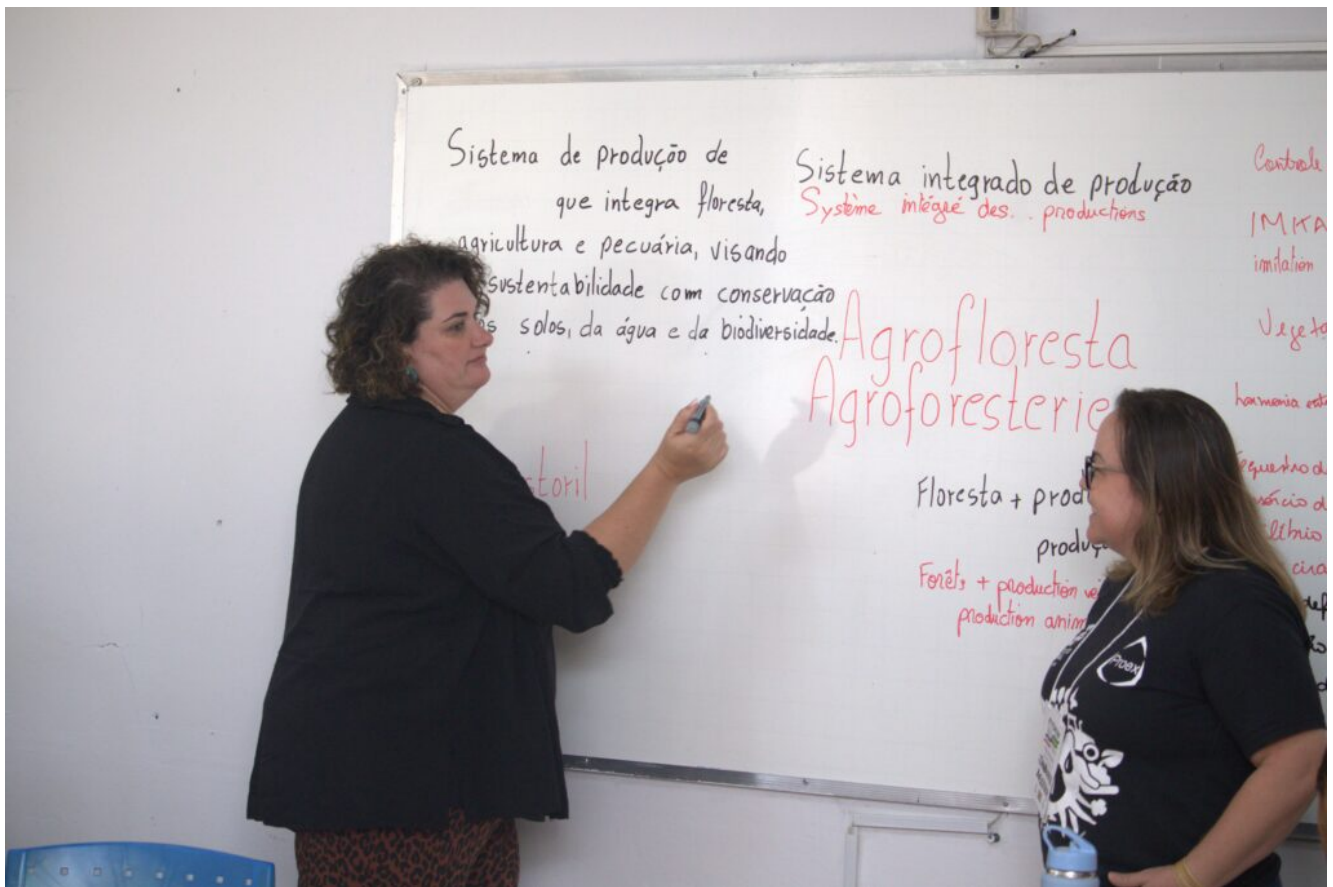 Sistema de produção de
que integra floresta,
agricultura e pecuária, visando
sustentabilidade com conservação
solos, da água e da biodiversidade.
storil
Sistema integrado de produção
Système intégré des.. productions
Agrofloresta
Agroforesterie
Floresta + prod
produç
Forêts + production vé
production anim
Controle
IMKA
imitation
Vegeta
harmonia
Proex